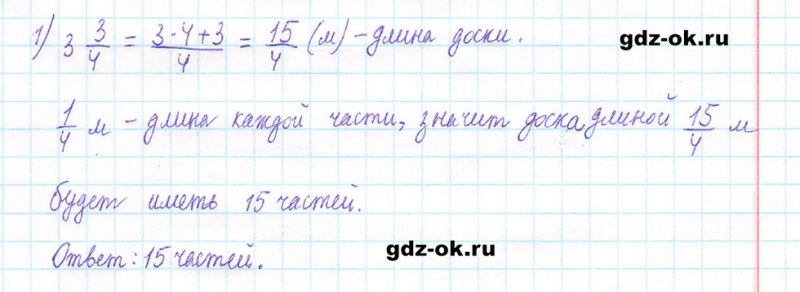 1) 3 3/4 = (3·4+3)/4 = 15/4 (м) – длина доски.
gdz-ok.ru
1/4 м – длина каждой части, значит доска длиной 15/4 м
будет иметь 15 частей.
Ответ: 15 частей.
gdz-ok.ru